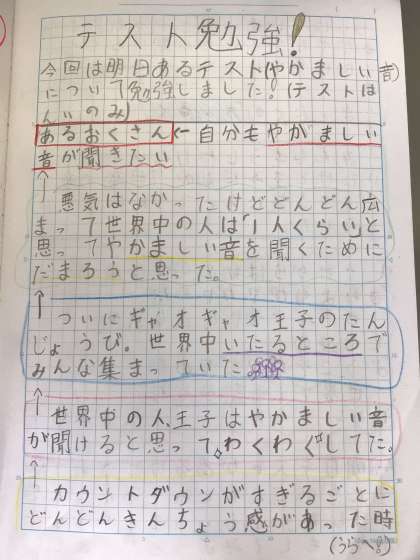 テスト勉強!
今回は明日あるテスト(やかましい音)
について勉強しました!(テストは
のみ)
あるおくさん←自分もやがましい
音が聞きたい
悪気はなかったけどどんどん広
まって世界中の人は「1人くらい」と
思ってやかましい音を聞くために
だまろうと思った。
ついにギャオギャオ王子のたん
じょうび。世界中いたるところで
みんな集まっていた
世界中の人、王子はやかましい音
が聞けると思って、わくわくしてた。
カウントダウンがすぎるごとに
どんどんきんちょう感があった時
(うらへ!)